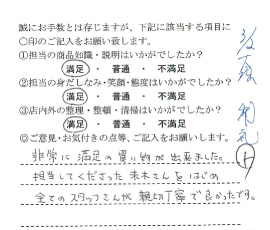 誠にお手数とは存じますが、下記に該当する項目に
○印のご記入をお願い致します。
①担当の商品知識・説明はいかがでしたか？
満足 ・ 普通 ・ 不満足
②担当の身だしなみ・笑顔・態度はいかがでしたか？
満足 ・ 普通 ・ 不満足
③店内外の整理・整頓・清掃はいかがでしたか？
満足 ・ 普通 ・ 不満足
◎ご意見・お気付きの点等、ご記入をお願いします。
非常に満足の買い物が出来ました。
担当してくださった未木さんをはじめ
全てのスタッフさんが親切丁寧で良かったです。